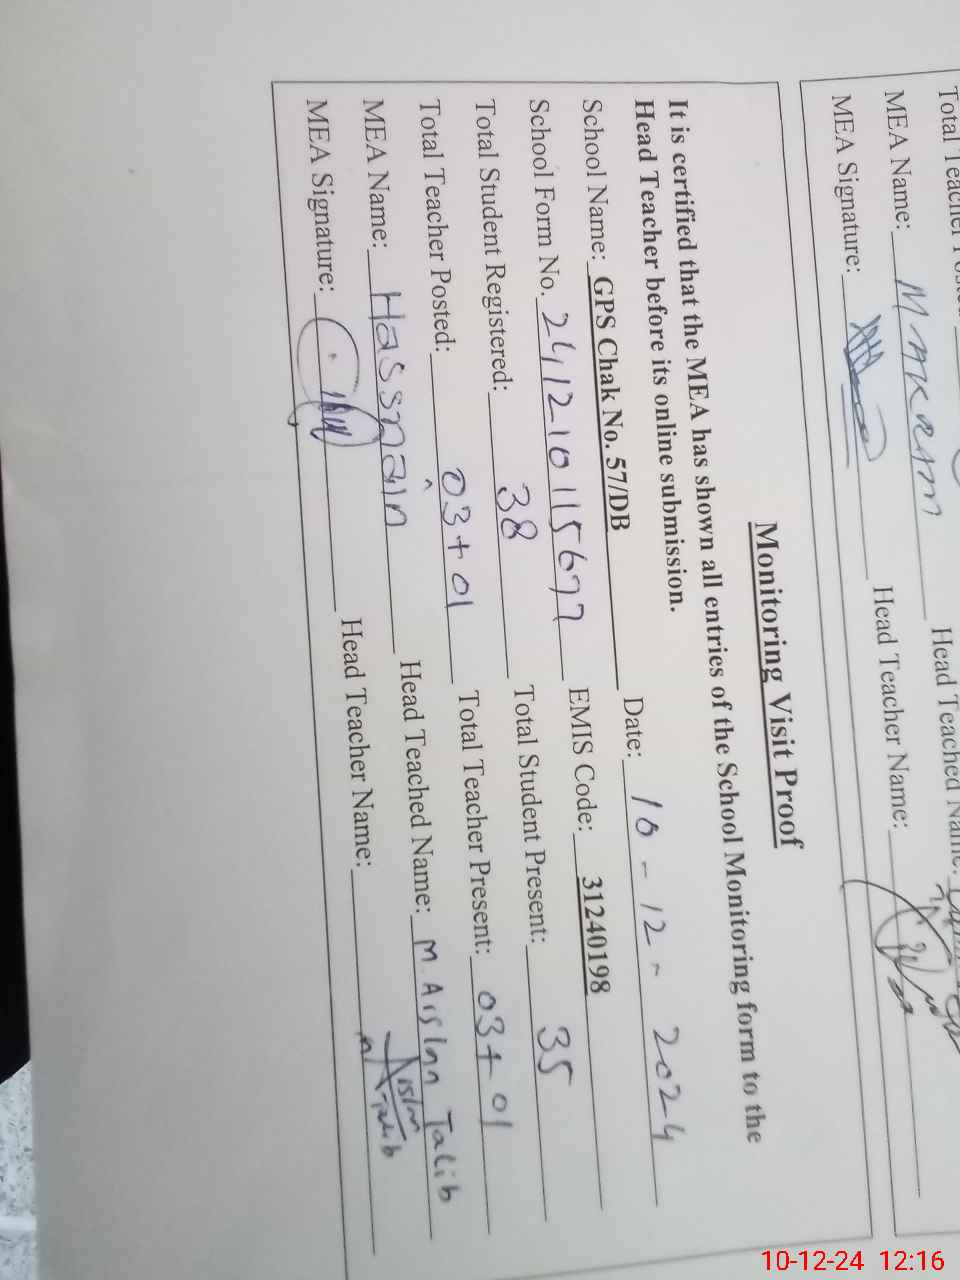 Total Teacher
MEA Name: M Mkarm Head Teached Name:
MEA Signature: Head Teacher Name:
Monitoring Visit Proof
It is certified that the MEA has shown all entries of the School Monitoring form to the
Head Teacher before its online submission.
Date: 10-12-2024
School Name: GPS Chak No. 57/DB EMIS Code: 31240198
School Form No. 241210115677 Total Student Present: 35
Total Student Registered: 38 Total Teacher Present: 03+01
Total Teacher Posted: 03+01 Head Teached Name: M. Arslan Talib
MEA Name: Hassnain Head Teacher Name: Arslan Talib
MEA Signature:
10-12-24 12:16